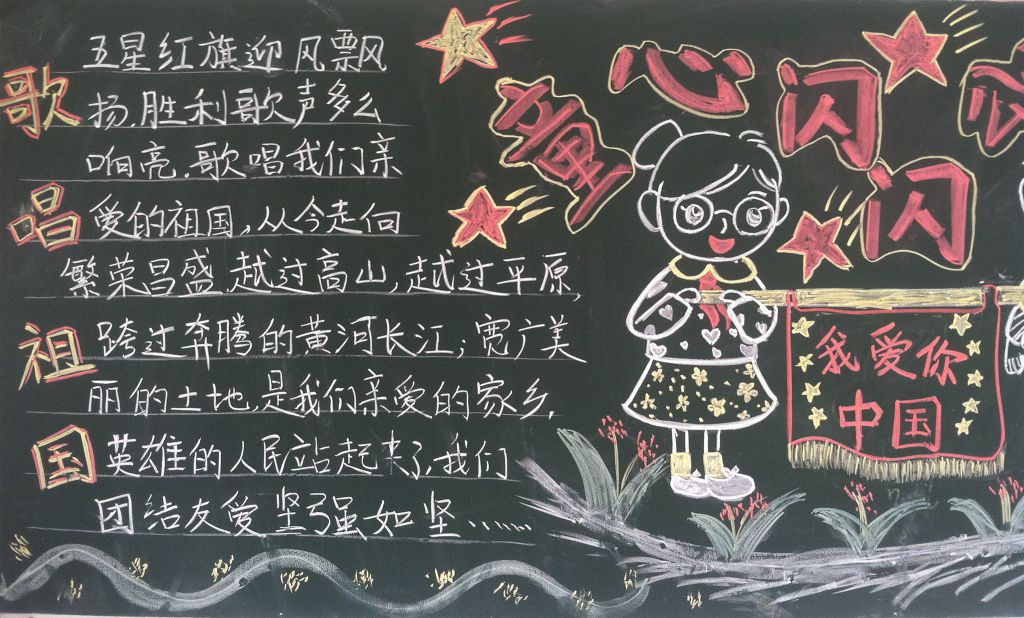 歌唱祖国
五星红旗迎风飘
扬,胜利歌声多么
响亮,歌唱我们亲
爱的祖国,从今走向
繁荣昌盛,越过高山,越过平原,
跨过奔腾的黄河长江;宽广美
丽的土地,是我们亲爱的家乡,
英雄的人民站起来了,我们
团结友爱坚强如坚……
童心闪闪
我爱你
中国